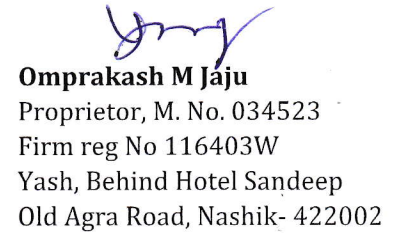 Omprakash M Jaju
Proprietor, M. No. 034523
Firm reg No 116403W
Yash, Behind Hotel Sandeep
Old Agra Road, Nashik- 422002